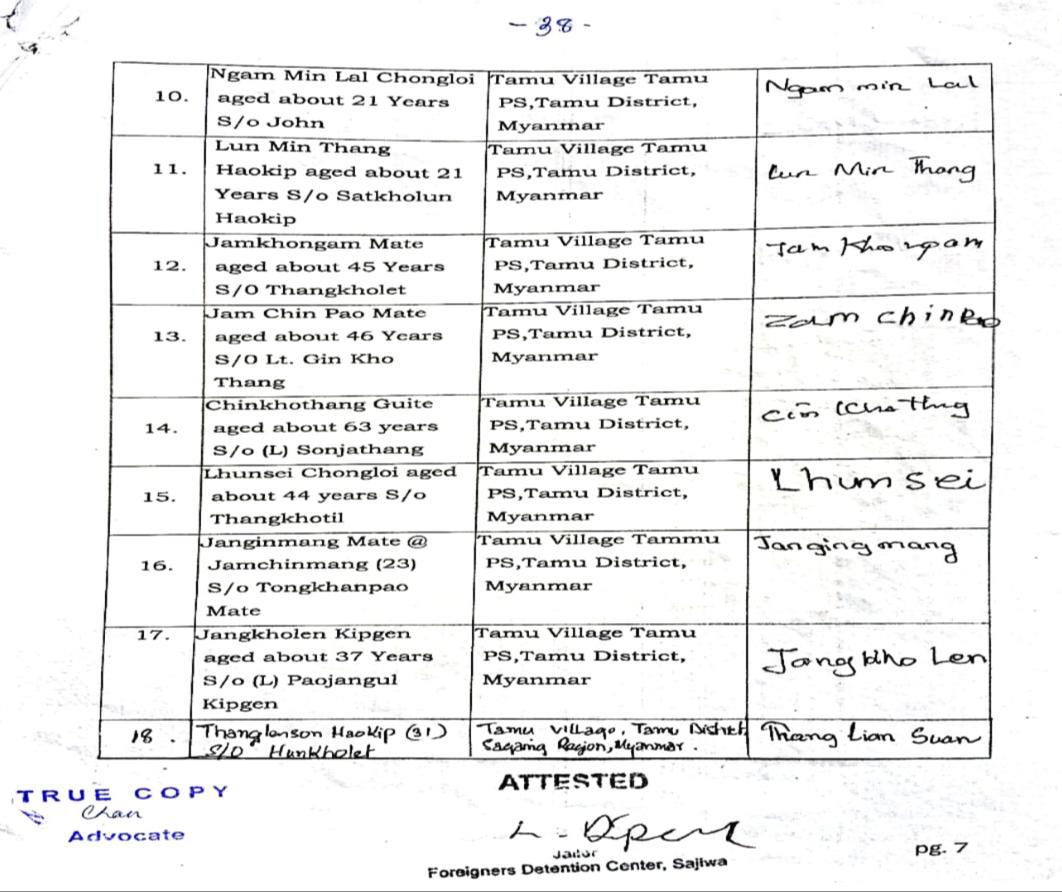 -38-
10. Ngam Min Lal Chongloi aged about 21 Years S/o John Tamu Village Tamu PS,Tamu District, Myanmar Ngam min Lal
11. Lun Min Thang Haokip aged about 21 Years S/o Satkholun Haokip Tamu Village Tamu PS,Tamu District, Myanmar Lun Min Thang
12. Jamkhongam Mate aged about 45 Years S/O Thangkholet Tamu Village Tamu PS,Tamu District, Myanmar Jam Khongam
13. Jam Chin Pao Mate aged about 46 Years S/O Lt. Gin Kho Thang Tamu Village Tamu PS,Tamu District, Myanmar Zam chin
14. Chinkhothang Guite aged about 63 years S/o (L) Sonjathang Tamu Village Tamu PS,Tamu District, Myanmar
15. Lhunsei Chongloi aged about 44 years S/o Thangkhotil Tamu Village Tamu PS,Tamu District, Myanmar Lhumsei
16. Janginmang Mate @ Jamchinmang (23) S/o Tongkhanpao Mate Tamu Village Tammu PS,Tamu District, Myanmar Janging mang
17. Jangkholen Kipgen aged about 37 Years S/o (L) Paojangul Kipgen Tamu Village Tamu PS,Tamu District, Myanmar Jangkho Len
18. Thanglenson Haokip (31) S/O Hunkholet Tamu Village, Tamu District Sagaing Region, Myanmar. Thang Lian Suan
ATTESTED
TRUE COPY
Chan
Advocate
Jailor
Foreigners Detention Center, Sajiwa
pg. 7